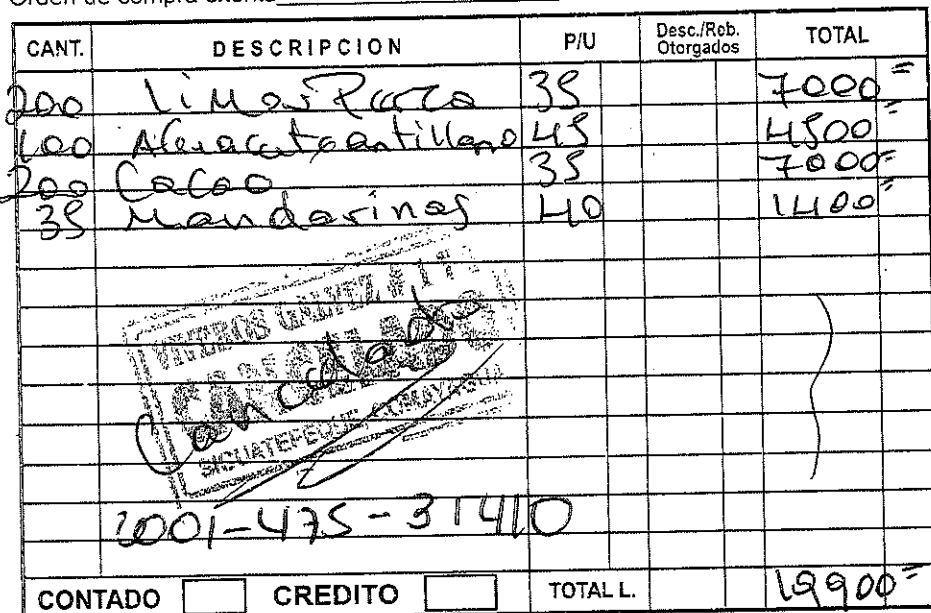 Orden de compra exenta
CANT. DESCRIPCION P/U Desc./Reb. Otorgados TOTAL
200 Limon Persa 35 7000=
100 Aguacate antillano 45 4500=
200 Cacao 35 7000=
35 Mandarinas 40 1400=
VIVEROS GALVEZ # 1
CANCELADO
Cancelado
SIGUATEPEQUE, COMAYAGUA
1001-475-31410
CONTADO CREDITO TOTAL L. 19900=